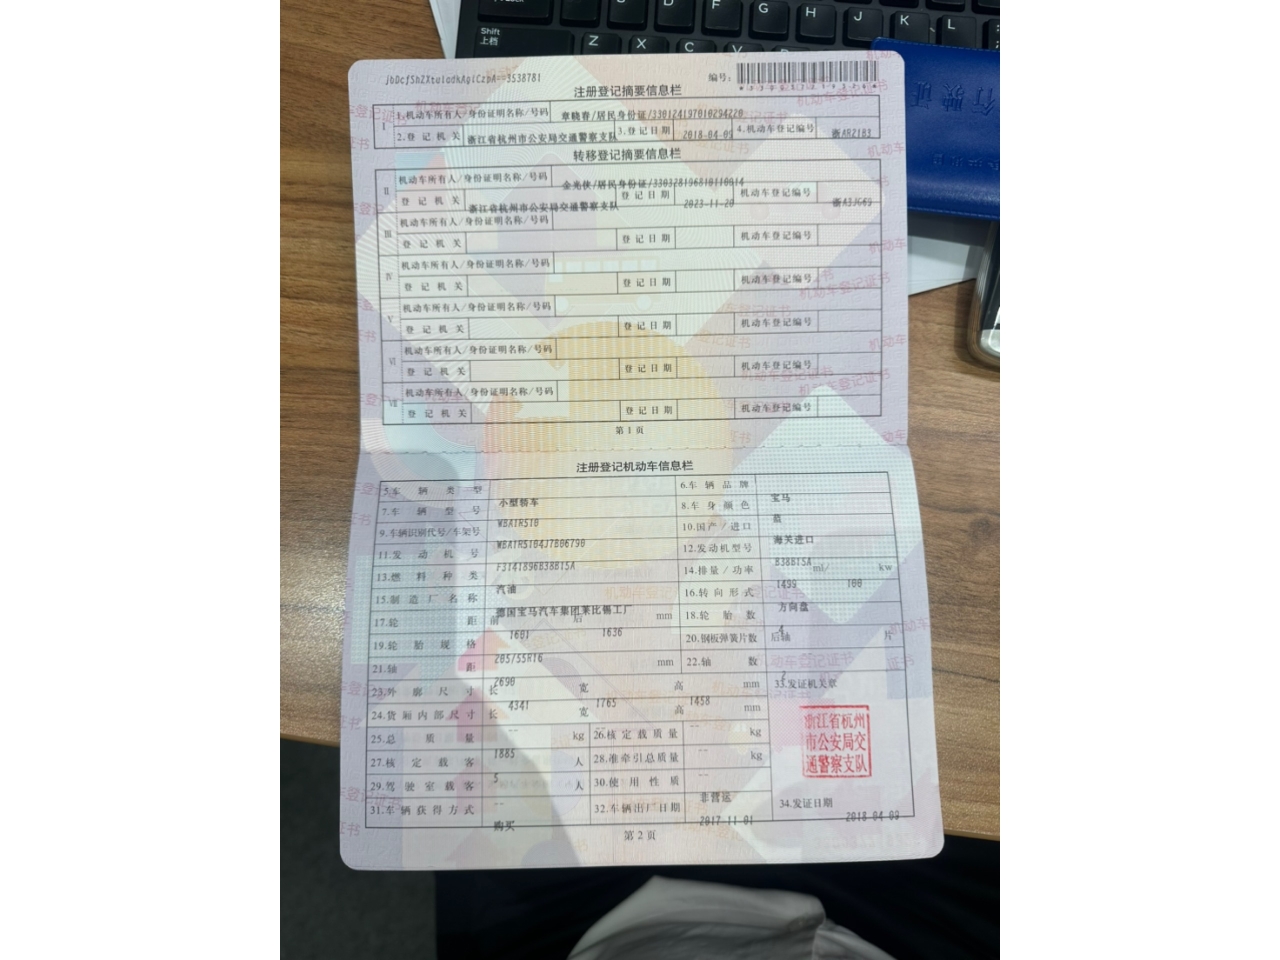 Shift
上档
Z X C V
F G H J K L
行驶证
jbDcfSbZXtuladkAgiCzpA==3538781
编号:
注册登记摘要信息栏
I 1.机动车所有人/身份证明名称/号码 章晓春/居民身份证/330124197010294220
2.登记机关 浙江省杭州市公安局交通警察支队 3.登记日期 2018-04-09 4.机动车登记编号 浙AR21B3
转移登记摘要信息栏
II 机动车所有人/身份证明名称/号码 金光侠/居民身份证/330328196810110014
登记机关 浙江省杭州市公安局交通警察支队 登记日期 2023-11-20 机动车登记编号 浙A3JG69
III 机动车所有人/身份证明名称/号码
登记机关 登记日期 机动车登记编号
IV 机动车所有人/身份证明名称/号码
登记机关 登记日期 机动车登记编号
V 机动车所有人/身份证明名称/号码
登记机关 登记日期 机动车登记编号
VI 机动车所有人/身份证明名称/号码
登记机关 登记日期 机动车登记编号
VII 机动车所有人/身份证明名称/号码
登记机关 登记日期 机动车登记编号
第1页
注册登记机动车信息栏
5.车辆类型 小型轿车 6.车辆品牌 宝马
7.车辆型号 WBA1R510 8.车身颜色 蓝
9.车辆识别代号/车架号 WBA1R5104J7B06790 10.国产/进口 海关进口
11.发动机号 F3141896B38B15A 12.发动机型号 B38B15A
13.燃料种类 汽油 14.排量/功率 1499 ml/ 100 kw
15.制造厂名称 德国宝马汽车集团莱比锡工厂 16.转向形式 方向盘
17.轮距 前 1601 后 1636 mm 18.轮胎数 4
19.轮胎规格 205/55R16 20.钢板弹簧片数 后轴 片
21.轴距 2690 mm 22.轴数 2
23.外廓尺寸 长 4341 宽 1765 高 1458 mm 33.发证机关章
24.货厢内部尺寸 长 -- 宽 -- 高 -- mm
25.总质量 1885 kg 26.核定载质量 -- kg
27.核定载客 5 人 28.准牵引总质量 -- kg
29.驾驶室载客 -- 人 30.使用性质 非营运
31.车辆获得方式 购买 32.车辆出厂日期 2017-11-01 34.发证日期 2018-04-09
浙江省杭州
市公安局交
通警察支队
第2页